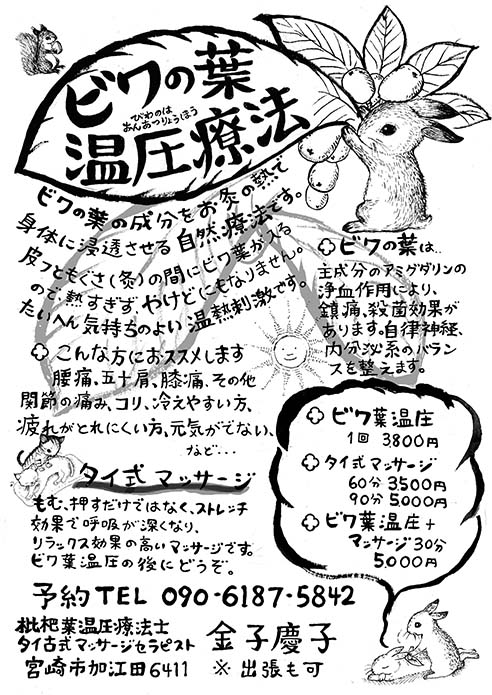 ビワの葉
びわのは
おんあつりょうほう
温圧療法
ビワの葉の成分をお灸の熱で
身体に浸透させる自然療法です。
皮フともぐさ(灸)の間にビワ葉が入る
ので、熱すぎず、やけどにもなりません。
たいへん気持ちのよい温熱刺激です。
こんな方におススメします
腰痛、五十肩、膝痛、その他
関節の痛み、コリ、冷えやすい方、
疲れがとれにくい方、元気がでない、
など…
ビワの葉は…
主成分のアミグダリンの
浄血作用により、
鎮痛、殺菌効果が
あります。自律神経、
内分泌系のバラン
スを整えます。
タイ式マッサージ
もむ、押すだけではなく、ストレッチ
効果で呼吸が深くなり、
リラックス効果の高いマッサージです。
ビワ葉温圧の後にどうぞ。
ビワ葉温圧
1回 3800円
タイ式マッサージ
60分 3500円
90分 5000円
ビワ葉温圧+
マッサージ30分
5000円
予約TEL 090-6187-5842
枇杷葉温圧療法士
タイ古式マッサージセラピスト 金子慶子
宮崎市加江田6411 ※出張も可